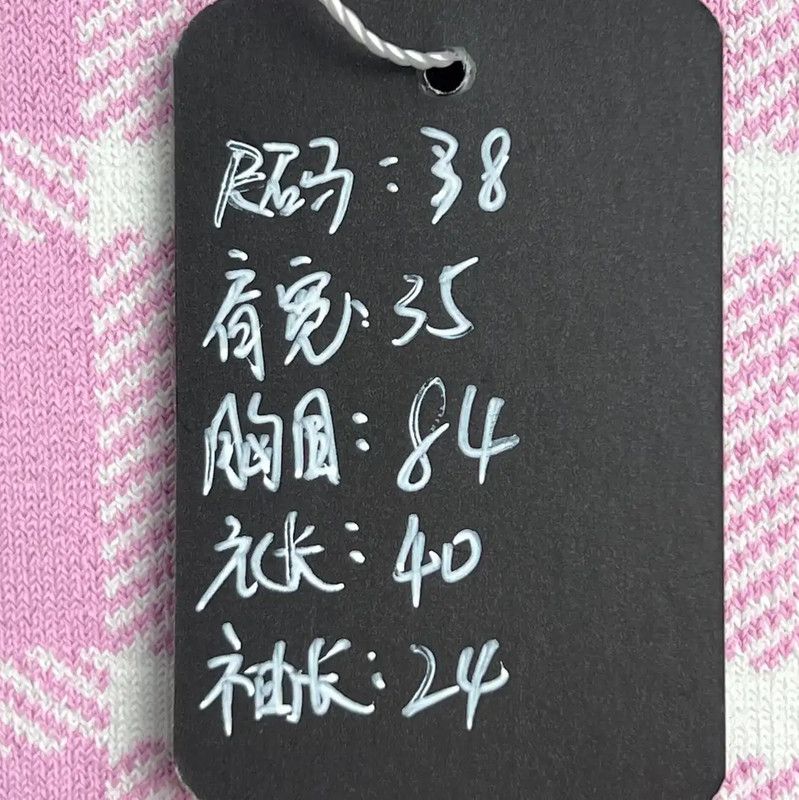 尺码:38
肩宽:35
胸围:84
衣长:40
袖长:24